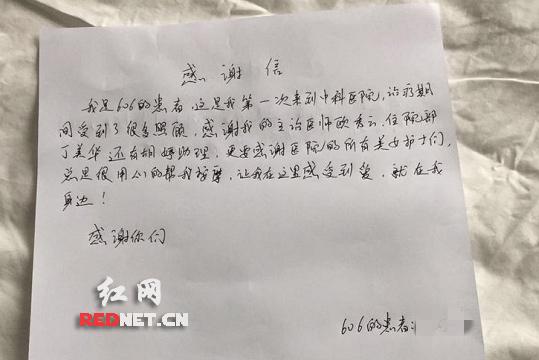 感谢信
我是606的患者,这是我第一次来到中科医院,治疗期
间受到了很多照顾,感谢我的主治医师欧秀云,住院部
丁美华还有胡婷助理,更要感谢医院的所有美女护士们,
总是很用心的帮我按摩,让我在这里感受到爱,就在我
身边!
感谢你们
606的患者:
红网
REDNET.CN